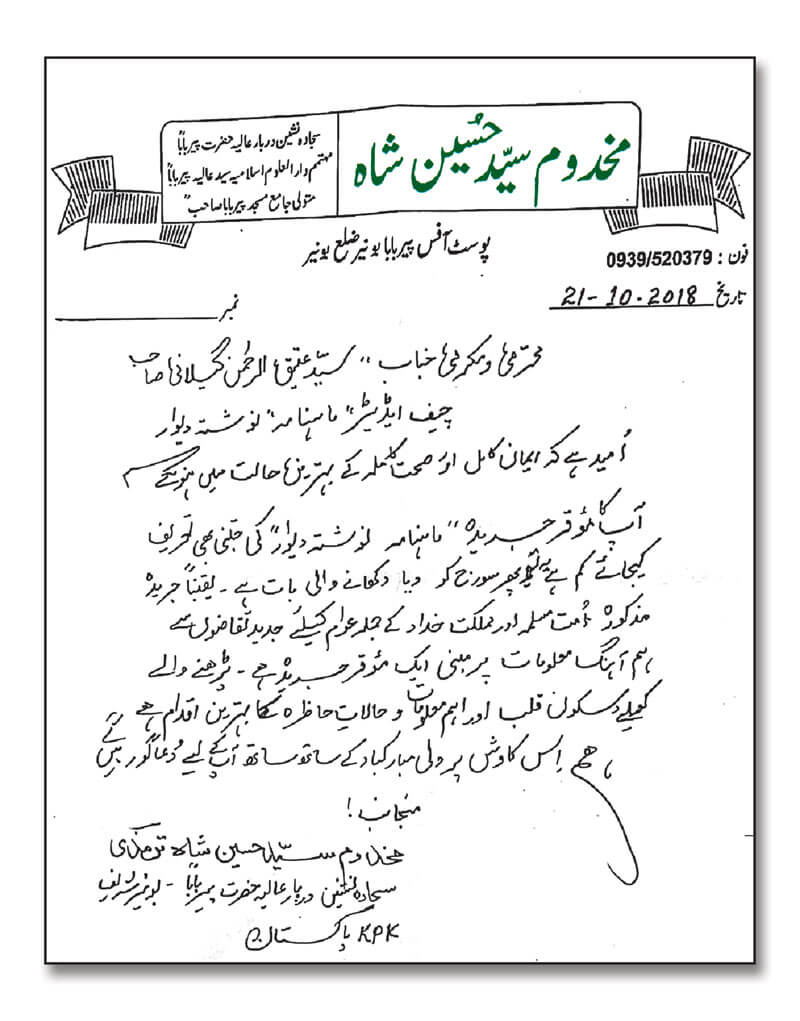 مخدوم سیّد حُسین شاہ
سجادہ نشین دربار عالیہ حضرت پیر باباؒ
مہتمم دار العلوم اسلامیہ سید عالیہ پیر باباؒ
متولی جامع مسجد پیر بابا صاحبؒ
پوسٹ آفس پیر بابا بونیر ضلع بونیر
فون : 0939/520379
تاریخ 21-10-2018
نمبر
محترمی و مکرمی جناب "سیّد عتیق الرحمٰن گیلانی صاحب
چیف ایڈیٹر "ماہنامہ" نوشتہ دیوار
اُمید ہے کہ ایمان کامل اور صحت کاملہ کے بہترین حالت میں ہونگے
آپ کا مؤقر جریدہ "ماہنامہ نوشتہ دیوار" کی جتنی بھی تعریف
کیجائے کم ہے پھر سورج کو دیا دکھانے والی بات ہے ۔ یقیناً جریدہ
مذکورہ اُمت مسلمہ اور مملکت خداد کے جملہ عوام کیلئے جدید تقاضوں سے
ہم آہنگ معلومات پر مبنی ایک مؤقر جریدہ ہے ۔ پڑھنے والے
کیلئے سکون قلب اور اہم معلومات و حالات حاظرہ کا بہترین اقدام ہے
ہم اِس کاوش پر دلی مبارکباد کے ساتھ ساتھ آپ کے لیے دُعا گو رہیں گے
منجانب !
مخدوم سیّد حسین شاہ ترمذی
سجادہ نشین دربار عالیہ حضرت پیر باباؒ - بونیر شریف
KPK پاکستان